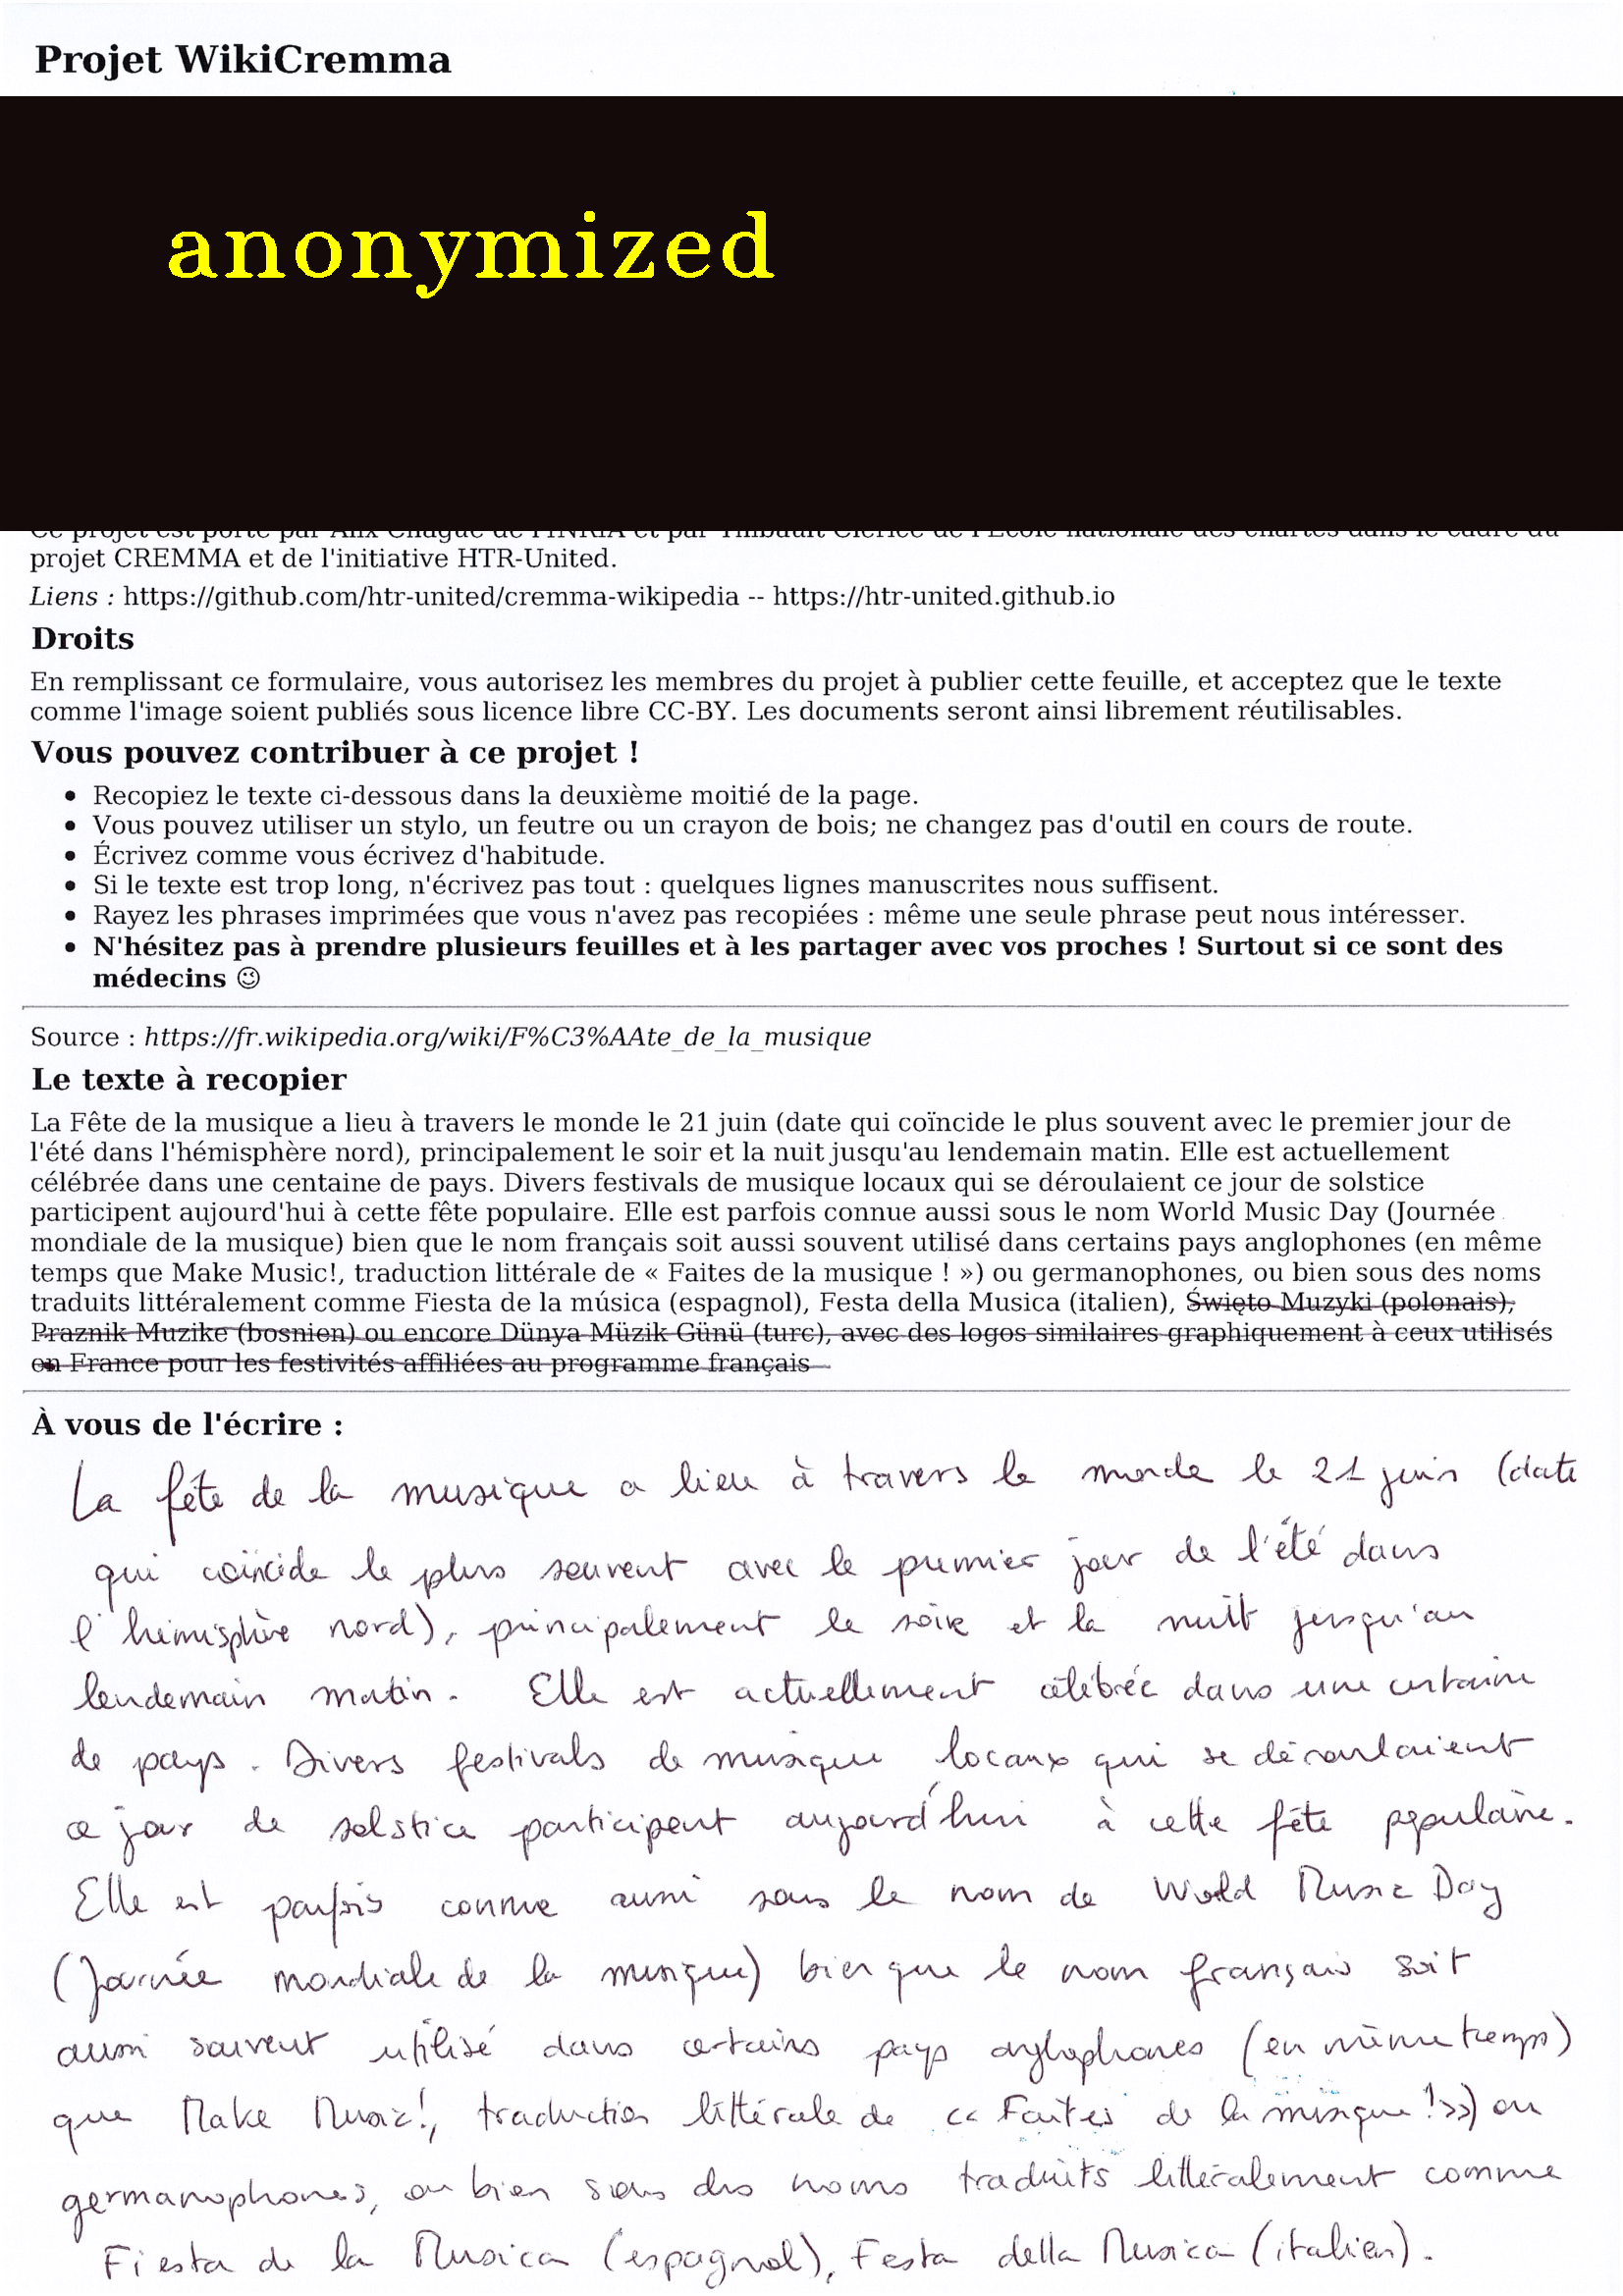 Projet WikiCremma
anonymized
Ce projet est porté par Alix Chagué de l'INRIA et par Thibault Clérice de l'École nationale des chartes dans le cadre du
projet CREMMA et de l'initiative HTR-United.
Liens : https://github.com/htr-united/cremma-wikipedia -- https://htr-united.github.io
Droits
En remplissant ce formulaire, vous autorisez les membres du projet à publier cette feuille, et acceptez que le texte
comme l'image soient publiés sous licence libre CC-BY. Les documents seront ainsi librement réutilisables.
Vous pouvez contribuer à ce projet !
• Recopiez le texte ci-dessous dans la deuxième moitié de la page.
• Vous pouvez utiliser un stylo, un feutre ou un crayon de bois; ne changez pas d'outil en cours de route.
• Écrivez comme vous écrivez d'habitude.
• Si le texte est trop long, n'écrivez pas tout : quelques lignes manuscrites nous suffisent.
• Rayez les phrases imprimées que vous n'avez pas recopiées : même une seule phrase peut nous intéresser.
• N'hésitez pas à prendre plusieurs feuilles et à les partager avec vos proches ! Surtout si ce sont des
médecins 😉
Source : https://fr.wikipedia.org/wiki/F%C3%AAte_de_la_musique
Le texte à recopier
La Fête de la musique a lieu à travers le monde le 21 juin (date qui coïncide le plus souvent avec le premier jour de
l'été dans l'hémisphère nord), principalement le soir et la nuit jusqu'au lendemain matin. Elle est actuellement
célébrée dans une centaine de pays. Divers festivals de musique locaux qui se déroulaient ce jour de solstice
participent aujourd'hui à cette fête populaire. Elle est parfois connue aussi sous le nom World Music Day (Journée
mondiale de la musique) bien que le nom français soit aussi souvent utilisé dans certains pays anglophones (en même
temps que Make Music!, traduction littérale de « Faites de la musique ! ») ou germanophones, ou bien sous des noms
traduits littéralement comme Fiesta de la música (espagnol), Festa della Musica (italien), Święto Muzyki (polonais),
Praznik Muzike (bosnien) ou encore Dünya Müzik Günü (turc), avec des logos similaires graphiquement à ceux utilisés
en France pour les festivités affiliées au programme français
À vous de l'écrire :
La fête de la musique a lieu à travers le monde le 21 juin (date
qui coïncide le plus souvent avec le premier jour de l'été dans
l'hémisphère nord), principalement le soir et la nuit jusqu'au
lendemain matin. Elle est actuellement célébrée dans une certaine
de pays. Divers festivals de musique locaux qui se déroulaient
ce jour de solstice participent aujourd'hui à cette fête populaire.
Elle est parfois connue aussi sous le nom de World Music Day
(Journée mondiale de la musique) bien que le nom français soit
aussi souvent utilisé dans certains pays anglophones (en même temps)
que Make Music!, traduction littérale de << Faites de la musique !>>) ou
germanophones, ou bien sous des noms traduits littéralement comme
Fiesta de la Musica (espagnol), Festa della Musica (italien).